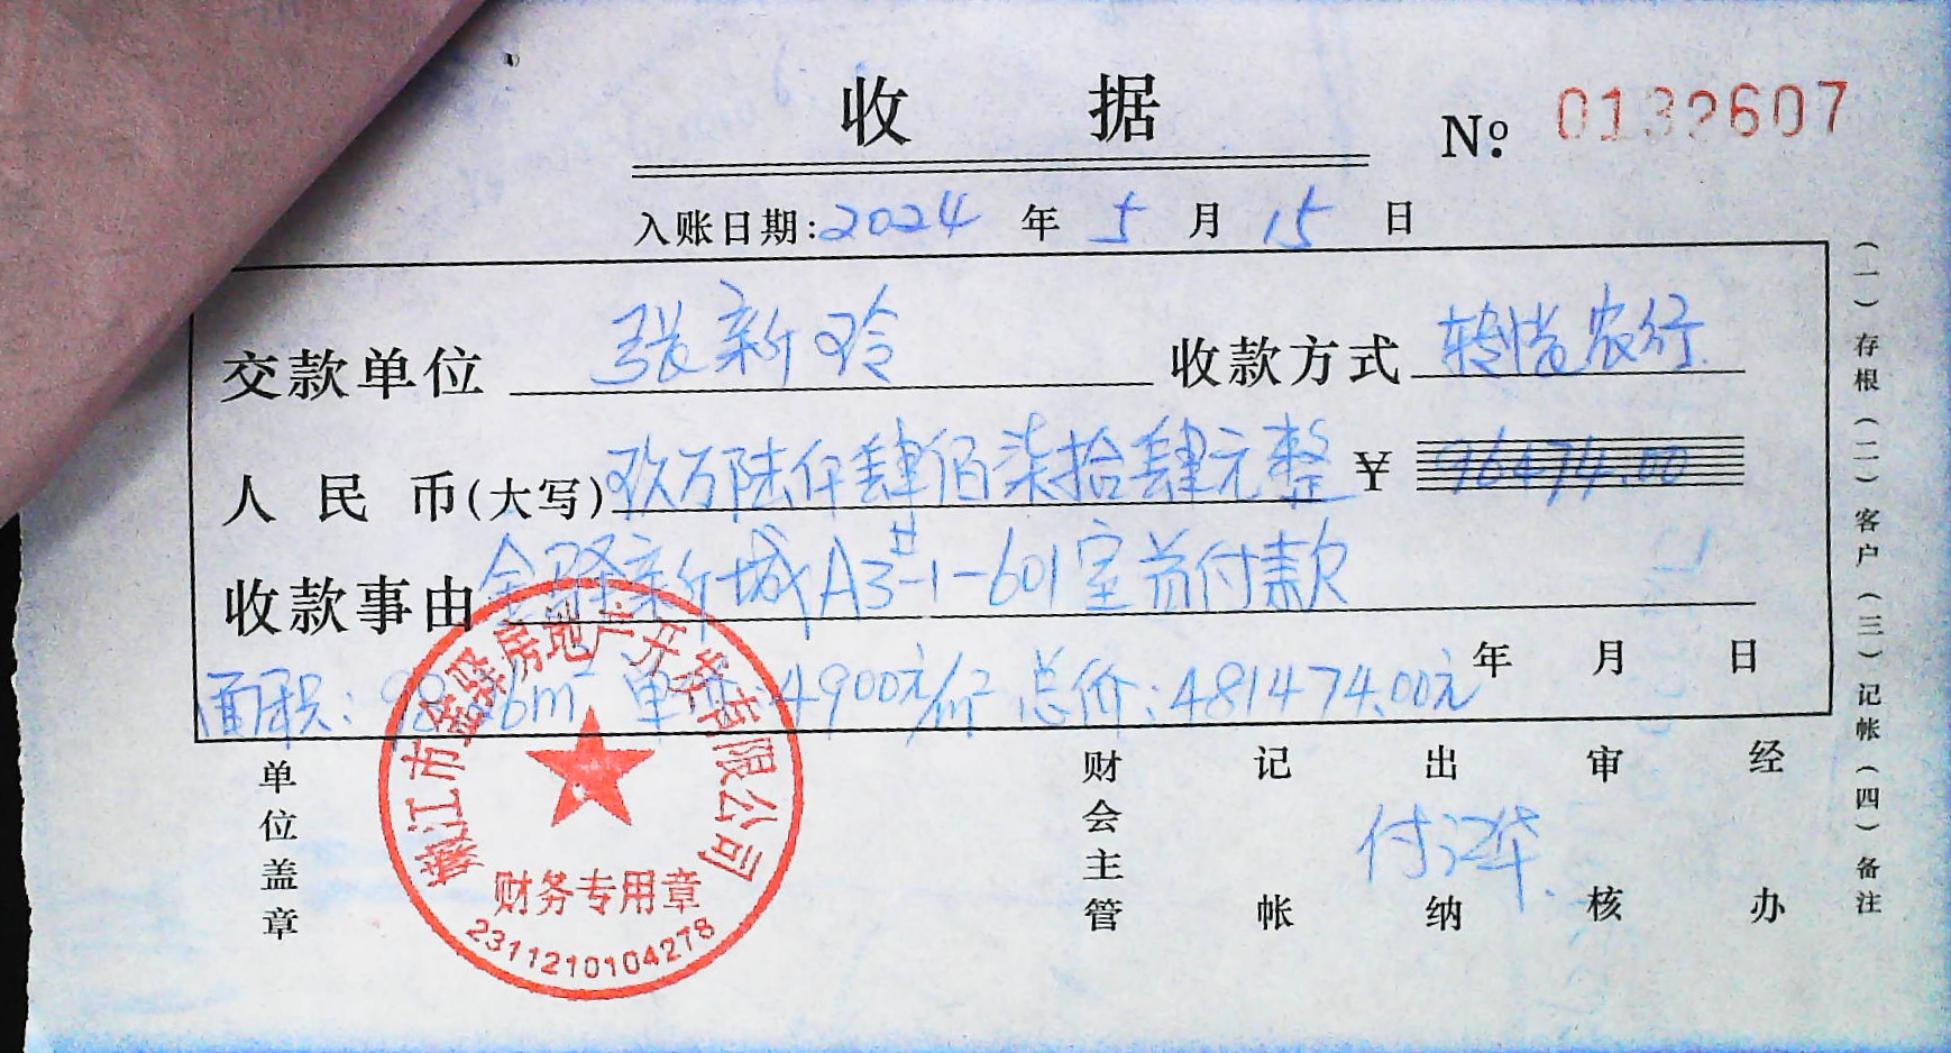 收据
№ 0132607
入账日期: 2024 年 5 月 15 日
交款单位 张新玲 收款方式 转账农行
人民币(大写) 玖万陆仟肆佰柒拾肆元整 ¥ 96474.00
收款事由 金驿新城A3#-1-601室首付款
年 月 日
面积: 98.26m² 单价: 4900元/m² 总价: 481474.00元
单位盖章
财会主管 记帐 出纳 审核 经办
付江华
嫩江市金驿房地产开发有限公司
财务专用章
2311210104278
(一)存根(二)客户(三)记帐(四)备注